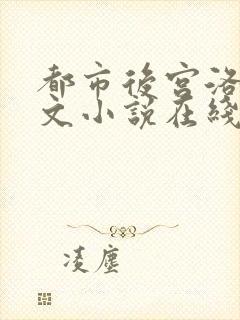 都市後宮洛
文小說在綫
凌塵